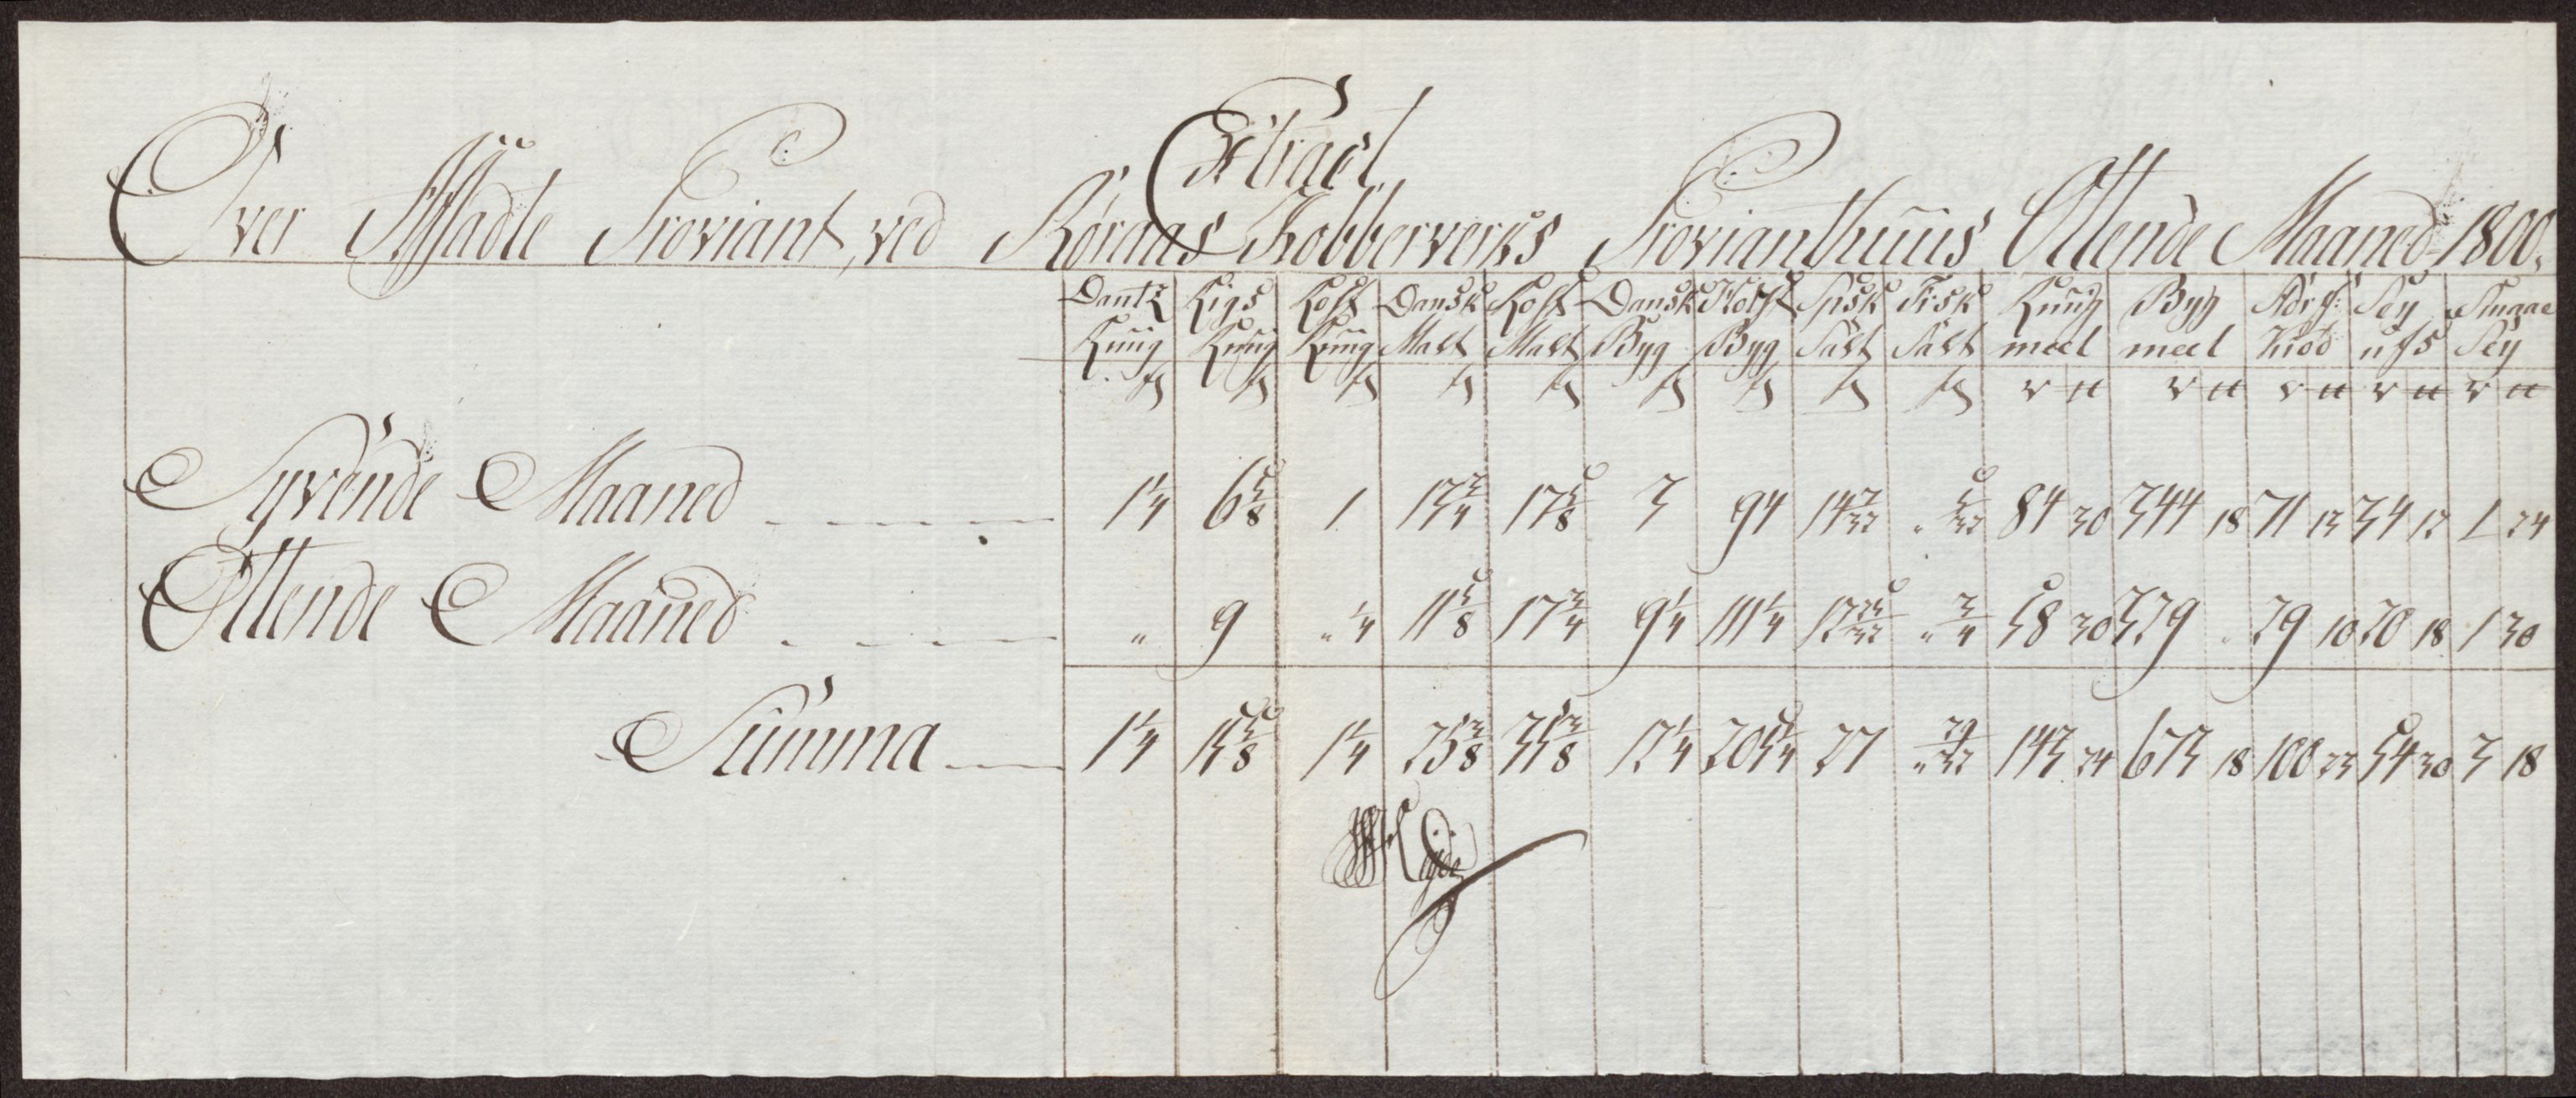 Extract
Over Afsadte Proviant, ved Röraas Kobberverks Provianthuus Ottende Maaned 1800.
Dantz Rug Rigs Rug Hoft Rug Dansk Malt Hoft Malt Dansk Byg Holst Byg Spisk Salt Fisk Salt Rug meel Byg meel Tört Kiöd Sey ufs Smaae Sey
Syvende Maaned 1 1/4 6 5/8 1 13 3/4 17 5/8 3 94 14 7/32 " 5/32 84 30 344 18 71 13 34 12 1 24
Ottende Maaned " 9 " 1/4 11 5/8 17 3/4 9 1/4 111 1/4 12 25/32 " 3/4 58 30 329 " 29 10 20 18 1 30
Summa 1 1/4 15 5/8 1 1/4 25 3/8 35 3/8 12 1/4 205 1/4 27 " 29/32 143 24 673 18 100 23 54 30 3 18